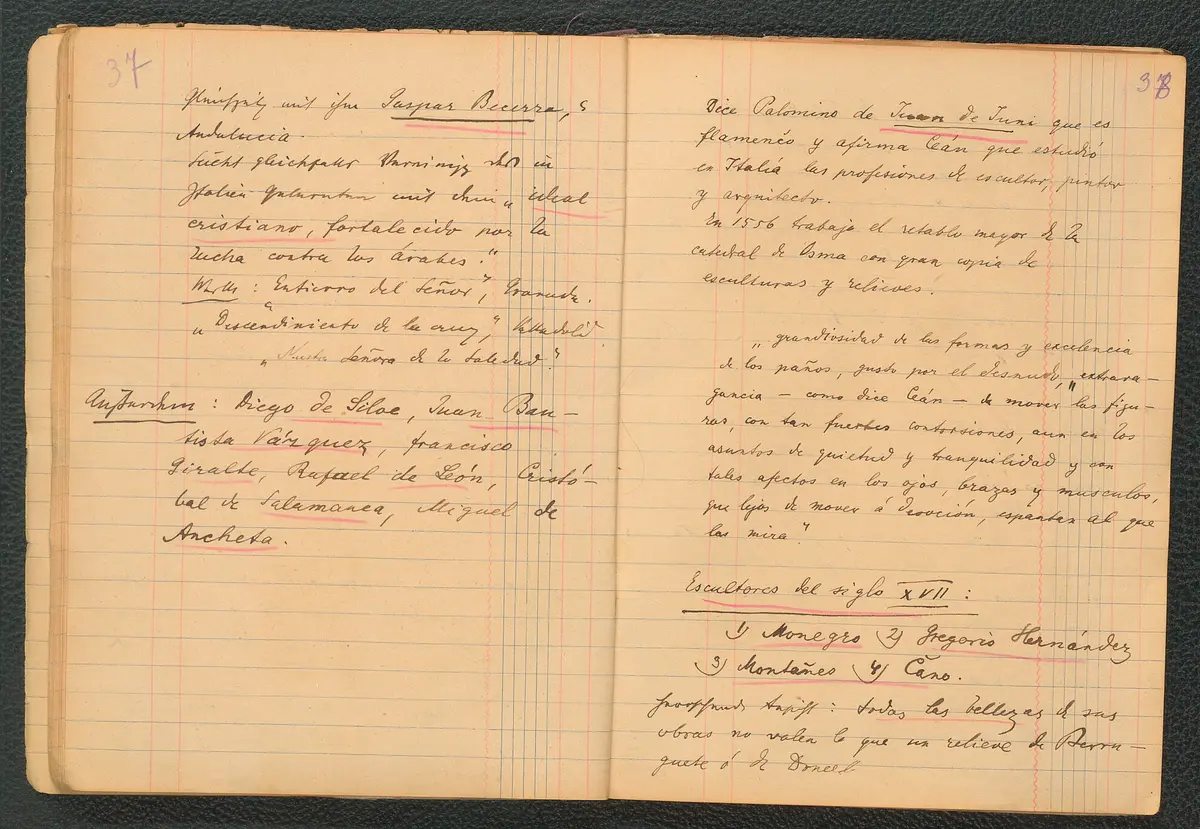 37
Gleichzeitig mit ihm Gaspar Becerra,
Andalucia.
sucht gleichfalls Vereinigg des in
Italien Gelernten mit dem „ideal
cristiano, fortalecido por la
lucha contra los árabes."
Werke: Entierro del Señor", Granada.
„Descendimiento de la cruz", Valladolid
„Nuestra Señora de la Soledad".
Außerdem: Diego de Siloe, Juan Bau-
tista Vázquez, Francisco
Giralte, Rafael de León, Cristó-
bal de Salamanca, Miguel de
Ancheta.
38
Dice Palomino de Juan de Juni que es
flamenco y afirma Ceán que estudió
en Italia las profesiones de escultor, pintor
y arquitecto.
En 1556 trabaja el retablo mayor de la
catedral de Osma con gran copia de
esculturas y relieves.
„grandiosidad de las formas y excelencia
de los paños, gusto por el desnudo, „extrava-
gancia — como dice Ceán — de mover las figu-
ras, con tan fuertes contorsiones, aun en los
asuntos de quietud y tranquilidad y con
tales afectos en los ojos, brazos y musculos,
que lejos de mover á devoción, espantan al que
las mira."
Escultores del siglo XVII:
1) Monegro 2) Gregorio Hernández
3) Montañes 4) Cano.
: todas las bellezas de sus
obras no valen lo que un relieve de Berru-
guete ó de Doncel